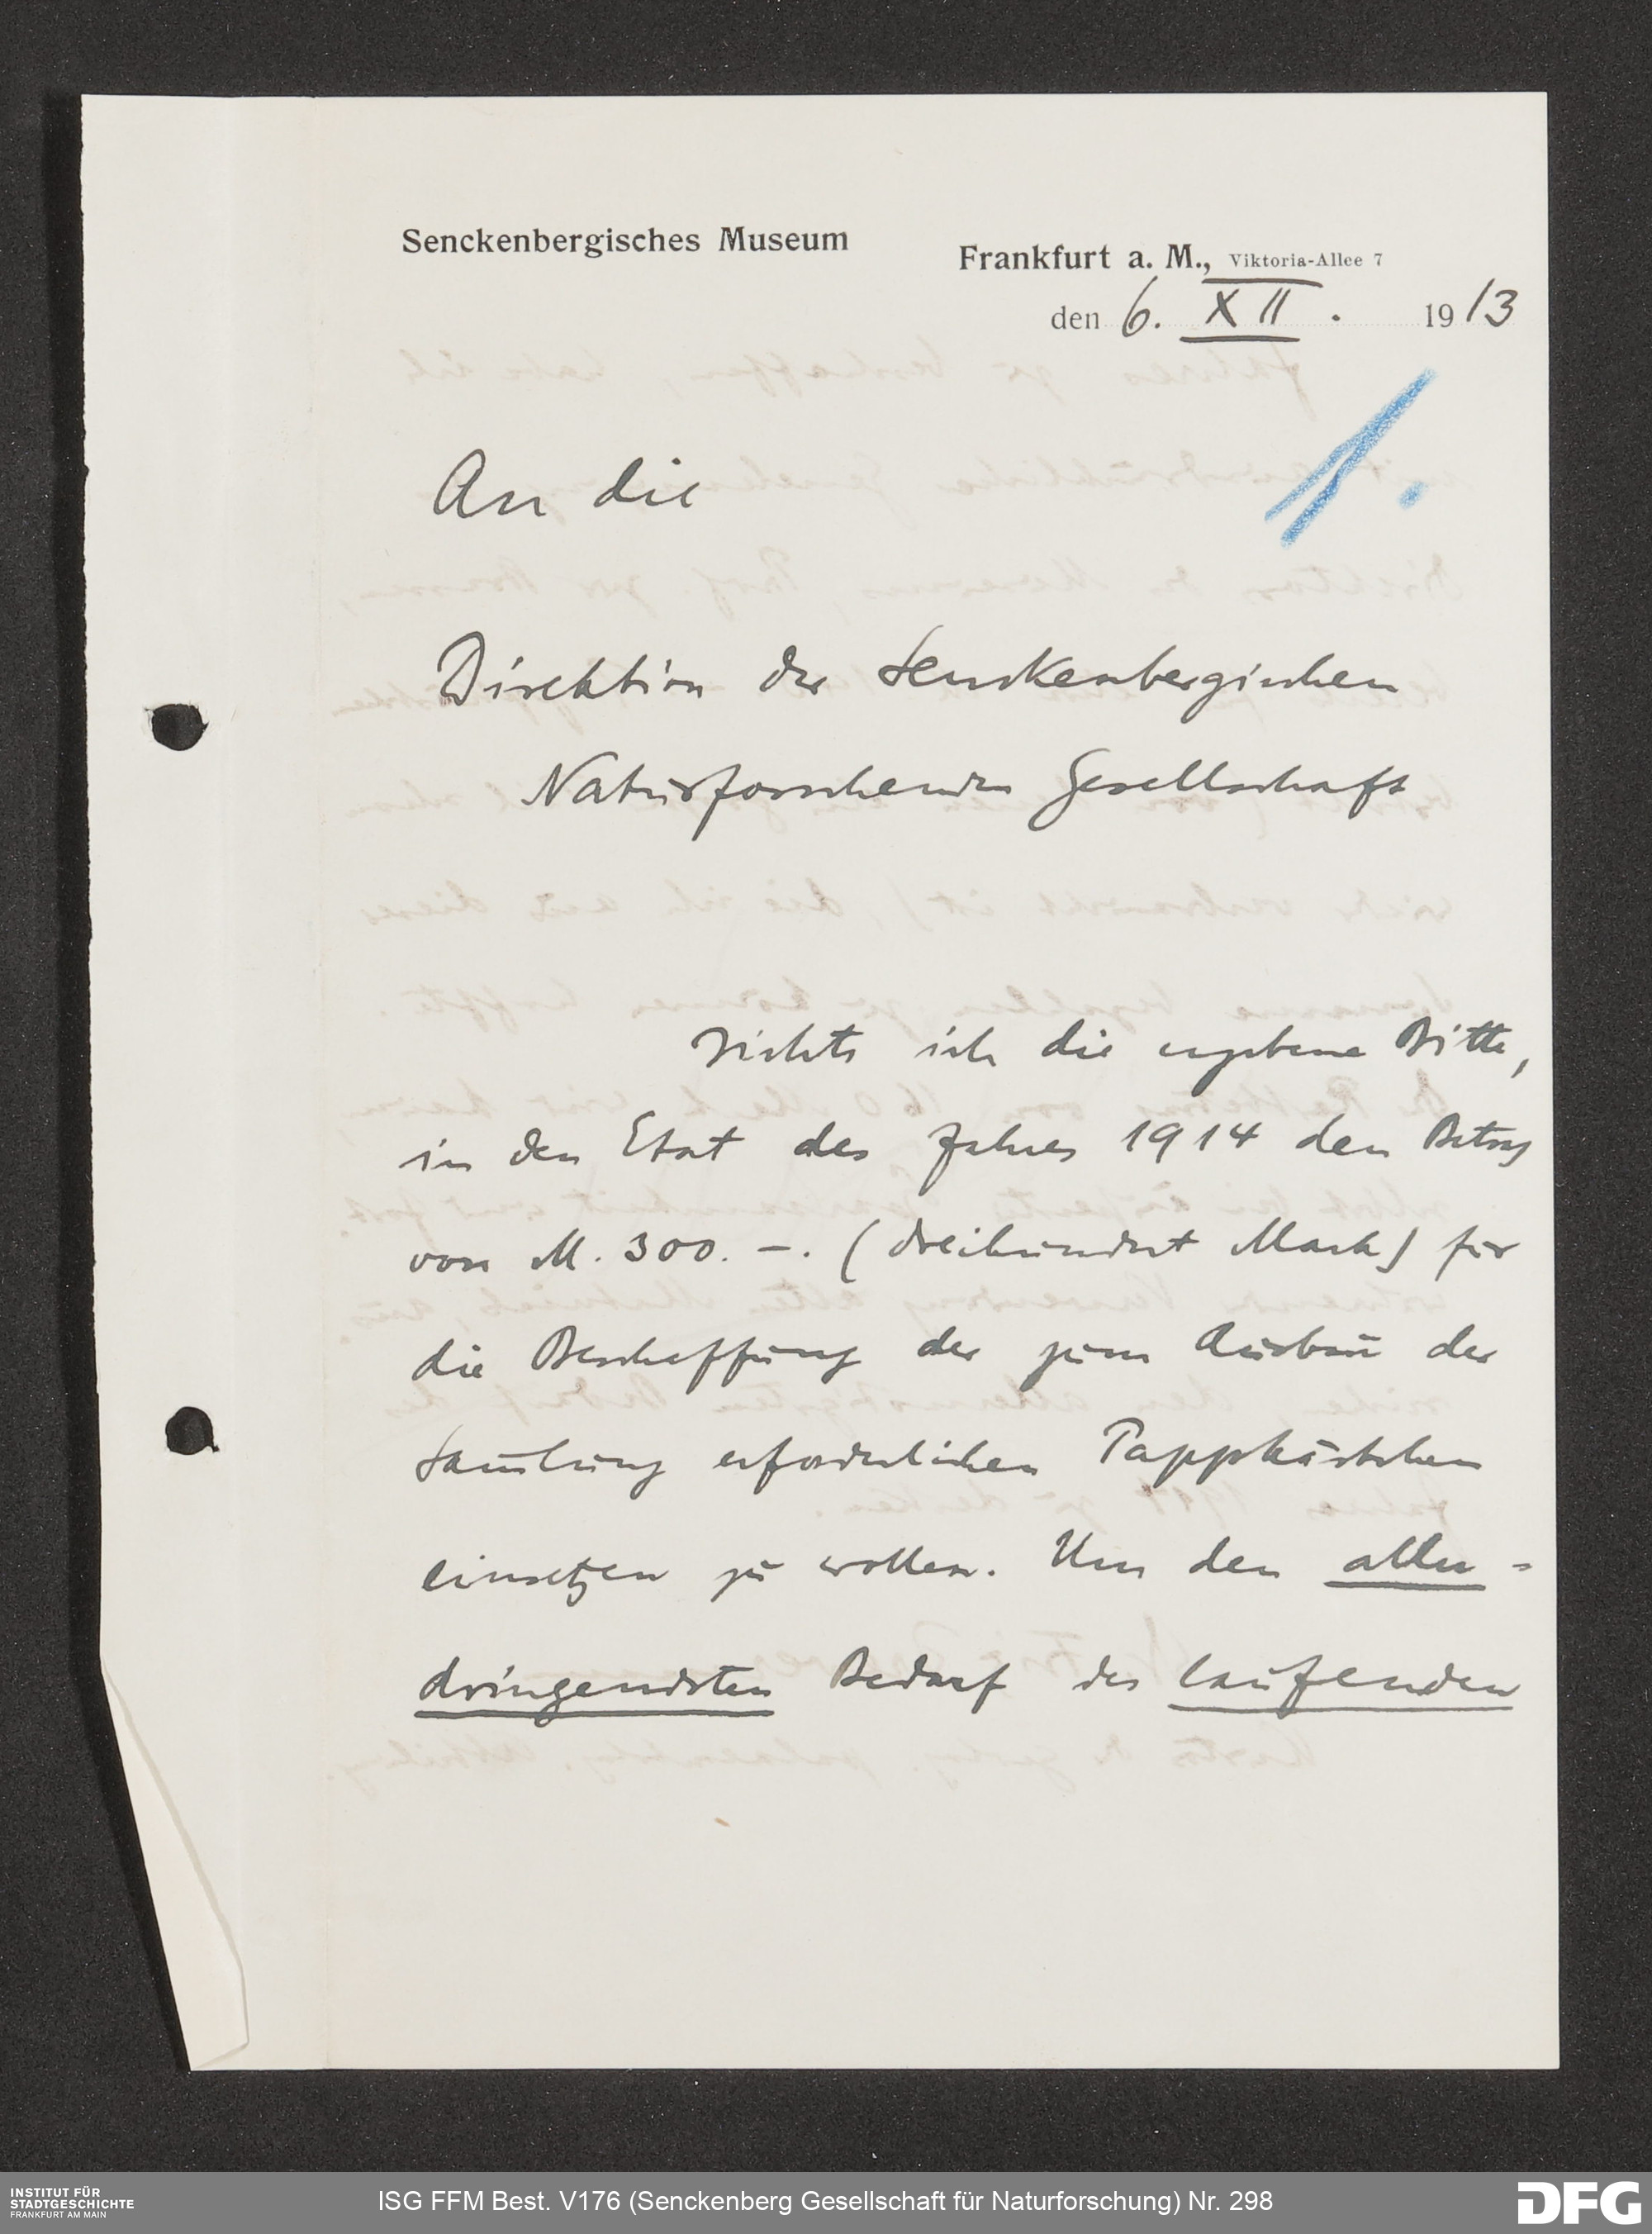 Senckenbergisches Museum
Frankfurt a. M., Viktoria-Allee 7
den 6. XII. 1913
An die
Direktion der Senckenbergischen
Naturforschenden Gesellschaft
richte ich die ergebene Bitte,
in den Etat des Jahres 1914 den Betrag
von M. 300.–. (dreihundert Mark) für
die Beschaffung der zum Ausbau der
Sam̄lung erforderlichen Pappkästchen
einsetzen zu wollen. Um den aller=
dringendsten Bedarf des laufenden
INSTITUT FÜR
STADTGESCHICHTE
FRANKFURT AM MAIN
ISG FFM Best. V176 (Senckenberg Gesellschaft für Naturforschung) Nr. 298
DFG